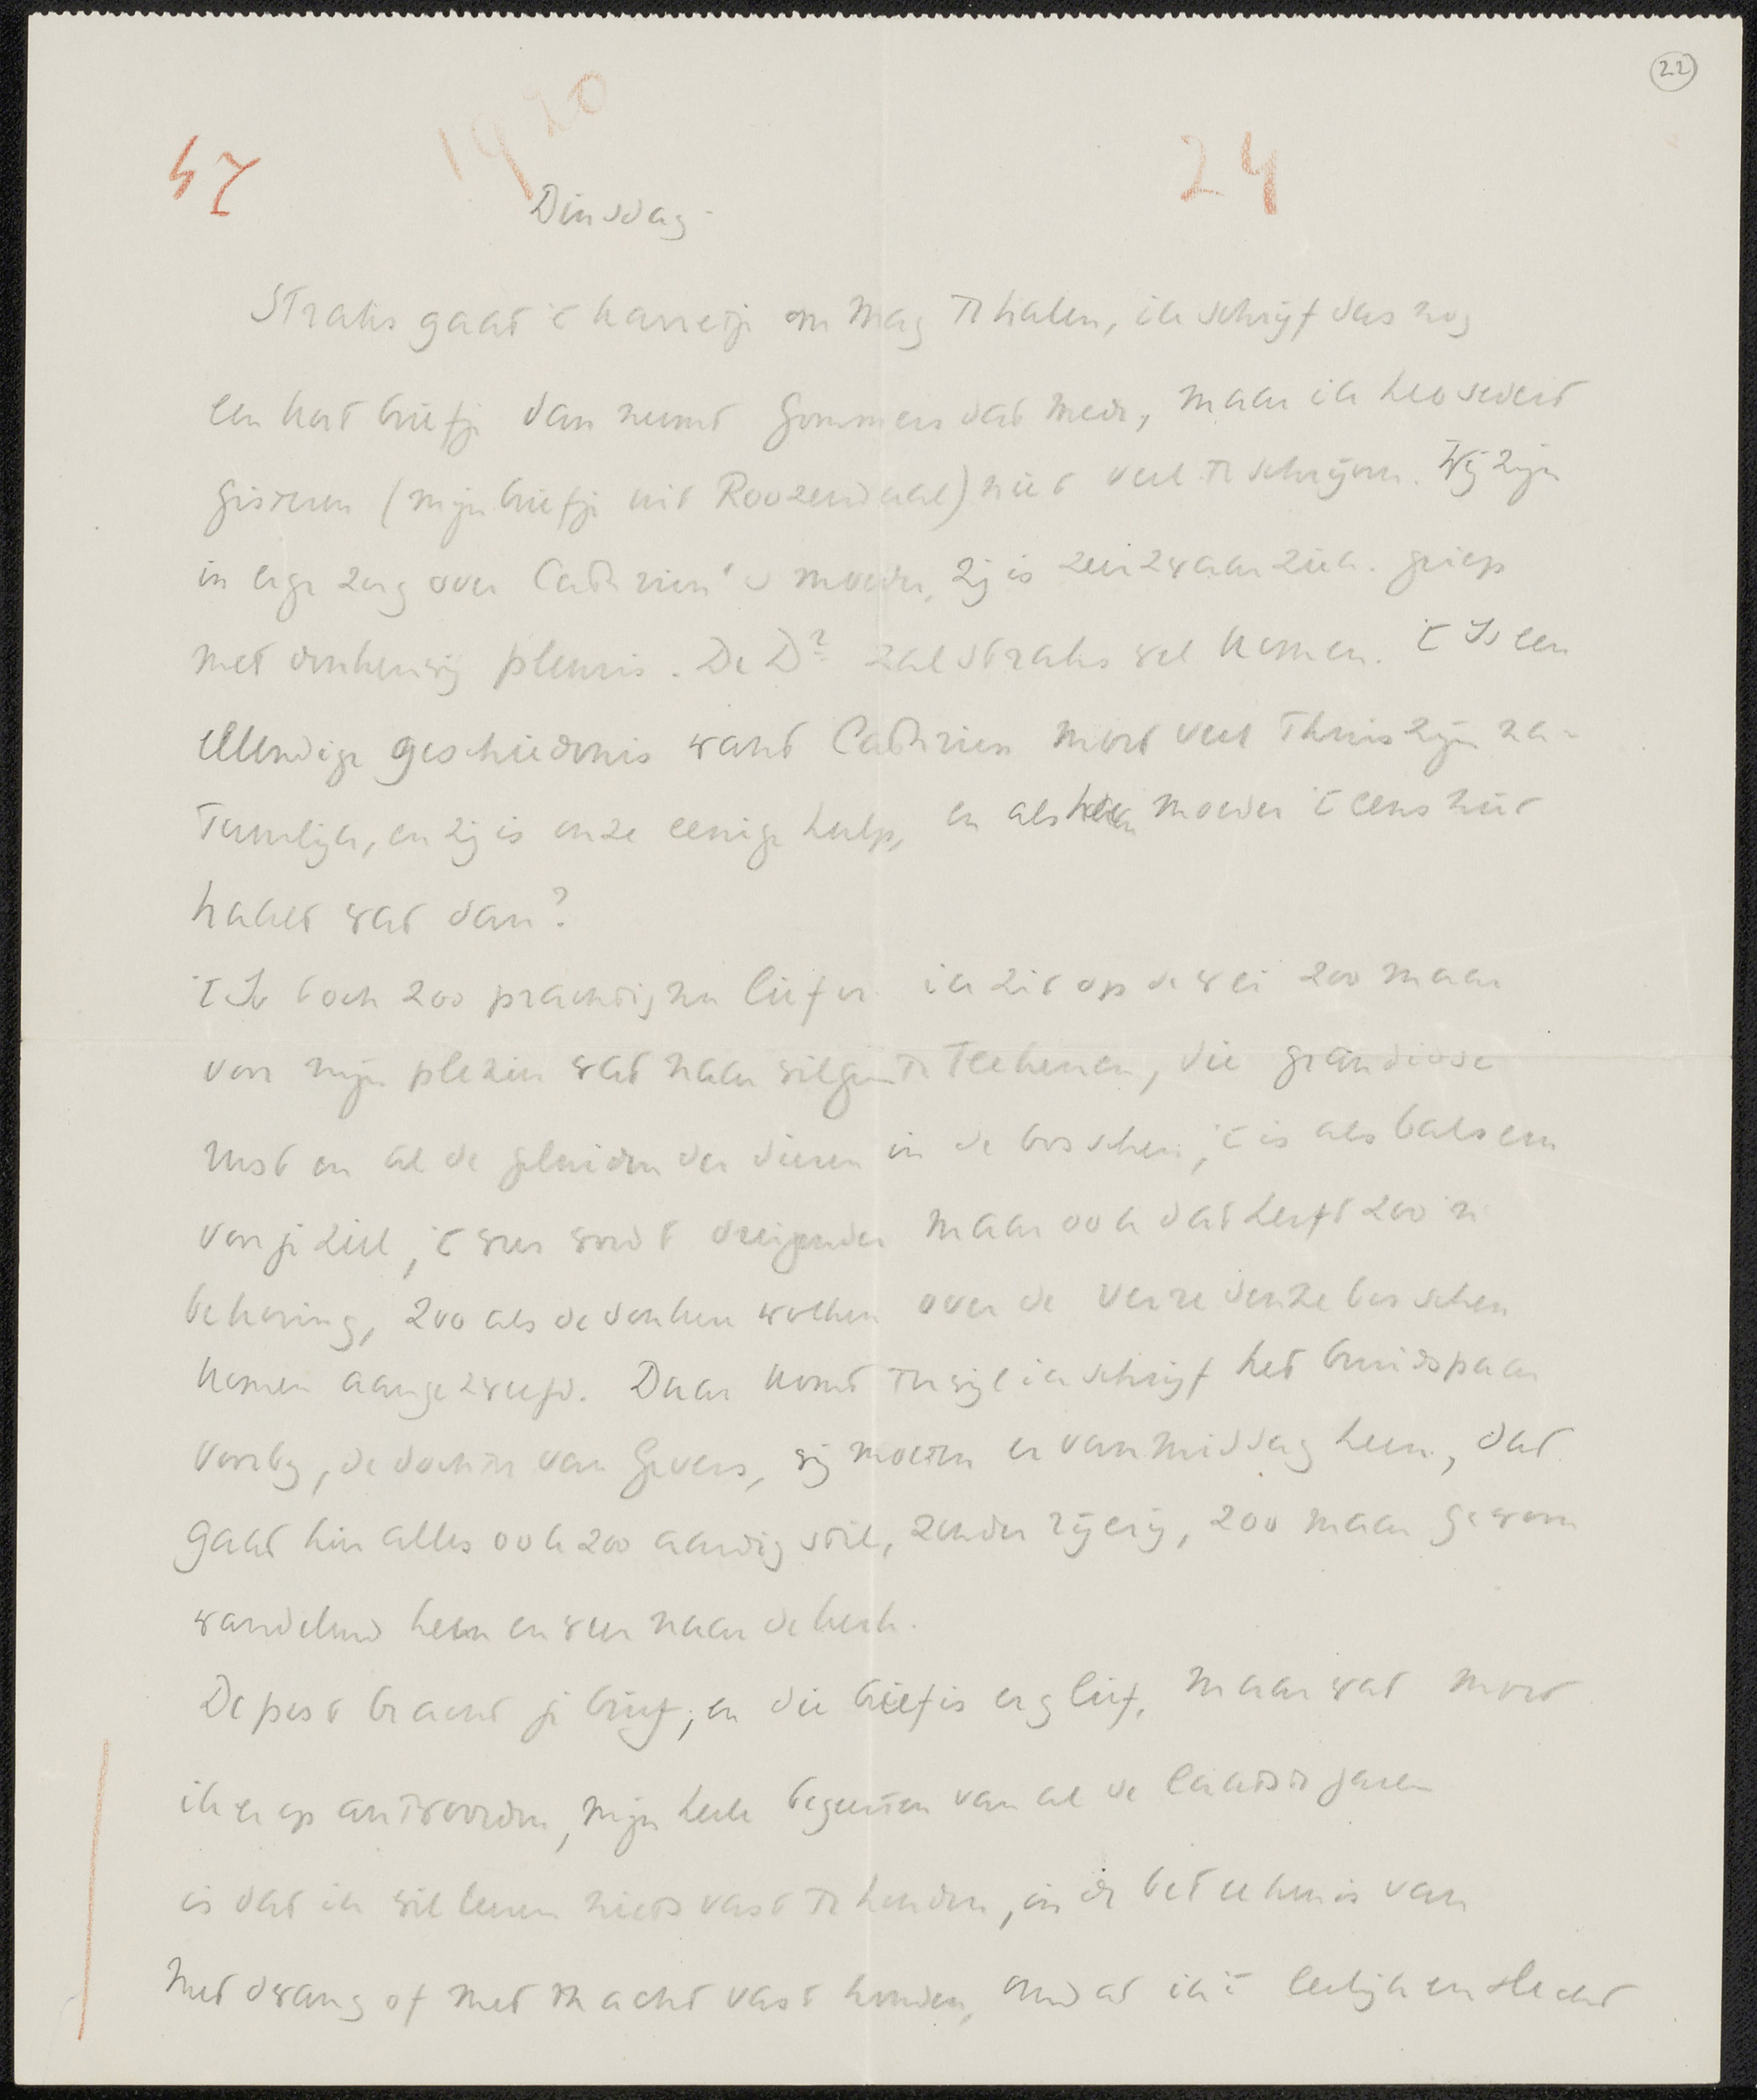 22
57 1920 24
Dinsdag.
Straks gaat 't karretje om Mag te halen, ik schrijf dus nog
een kort briefje dan neemt Gommers dat mede, maar ik heb sedert
gisteren (mijn briefje uit Roozendaal) niet veel te schrijven. Wij zijn
in erge zorg over Cathrien's moeder, zij is zeer zwaar ziek. griep
met pleuris. De Dr zal straks wel komen. 't Is een
ellendige geschiedenis want Cathrien moet veel thuis zijn na-
tuurlijk, en zij is onze eenige hulp, en als moeder 't eens niet
haalt wat dan?
't Is toch zoo prachtig nu liefer. ik zit op de hei zoo maar
voor mijn plezier wat naar wilgen te teekenen, die grandiose
rust en al de geluiden der dieren in de bosschen, 't is als balsem
voor je ziel, 't weer wordt dreigender maar ook dat heeft zoo'n
bekoring, zoo als de donkere wolken over de verre denzebosschen
komen aangezweefd. Daar komt terwijl ik schrijf het bruidspaar
voorbij, de dochter van Gevers, wij moeten er vanmiddag heen, dat
gaat hier alles ook zoo aardig stil, zonder rijerij, zoo maar gewoon
wandelend heen en weer naar de kerk.
De post bracht je brief, en die brief is erg lief, maar wat moet
ik er op antwoorden, mijn heele begeerten van al de laatste jaren
is dat ik wil leeren niets vast te houden, in de beteekenis van
met dwang of met macht vast houden, omdat ik 't leelijk en slecht